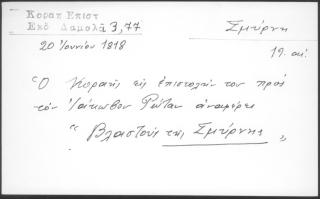 Κοραη Επιστ
Εκδ Δαμαλᾶ 3,77
Σμύρνη
20 Ἰουνίου 1818
19. αἰ.
Ὁ Κοραῆς εἰς ἐπιστολήν του πρός
τόν Ἰάκωβον Ρώταν ἀναφέρει
"Βλαστούς τῆς Σμύρνης"